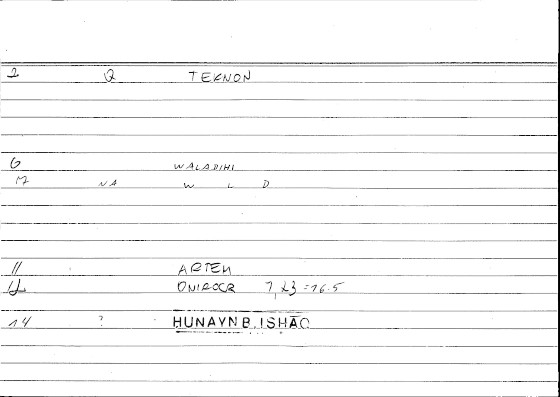 2 Q TEKNON
6 WALADIHI
12 NA W L D
11 ARTEM
12 ONIROCR 1, 23 = 26.5
14 ? HUNAYN B. ISHĀQ